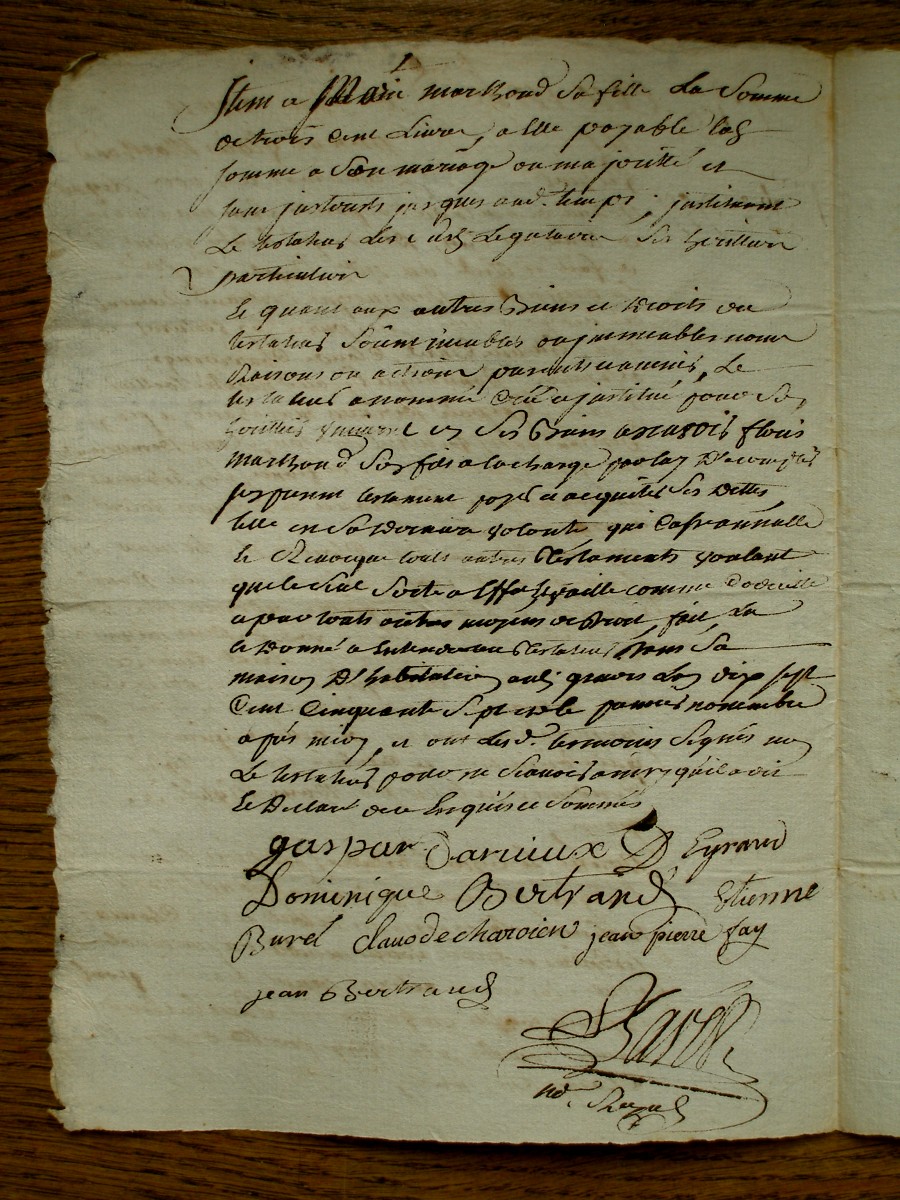 Item a Marie marthoud Sa fille La Somme
de trois Cent Livres, a Elle payable lad.
somme a Son mariage ou majorité et
sans jnterets jusques aud. temps; jnstituant
Le testateur Les Susd. Legataires Ses heritiers
particuliers
Et quant aux autres Biens et Droits du
testateur Soint meubles ou jmmeubles noms
Raisons ou actions presents et avenir, Le
testateur a nommé Créé et jnstitué pour Son
heritier universel en Ses Biens
marthoud Son fils a la charge par luy D'accomplir
Son present testament payer et acquiter Ses Dettes
telle est Sa Derniere volonté, qui Casse annulle
Et Revocque touts autres testaments voulant
que le Seul Sorte a Effet et vaille comme Codicille
et par touts autres moyens de Droit, fait Lu
et Donné a Entendre au testateur Dans Sa
maison D'habitation aud. L'an dix sept
Cent Cinquante Sept et le premier novembre
apres midy, et ont Lesd. temoins Signés non
Le testateur pour ne Scavoir ainsy qu'il a dit
Et Declaré de ce Enquis et Sommé
gaspar Darnieux Eyraud
Dominique Bertrand Etienne
Burel Claude charoien jean pierre fay
jean Bertrand
no.re Royal